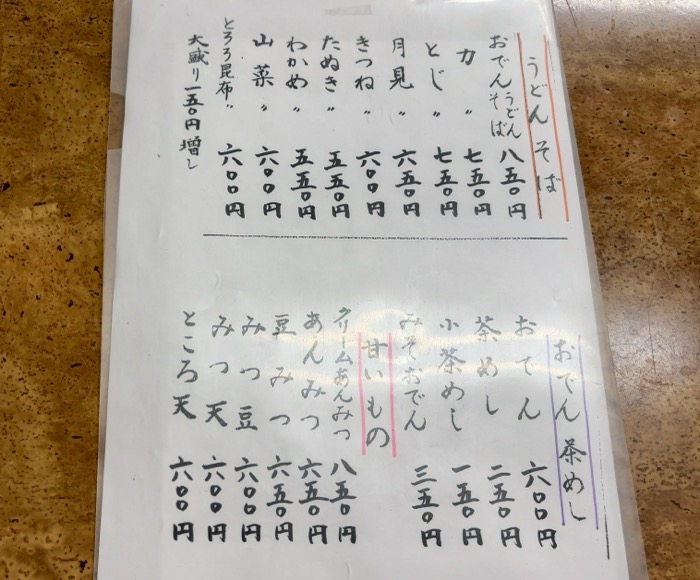 うどん そば
おでん うどん そば 八五〇円
力 〃 七五〇円
とじ 〃 七五〇円
月見 〃 六五〇円
きつね 〃 六〇〇円
たぬき 〃 五五〇円
わかめ 〃 五五〇円
山菜 〃 六〇〇円
とろろ昆布 〃 六〇〇円
大盛り一五〇円増し
おでん 茶めし
おでん 六〇〇円
茶めし 二五〇円
小茶めし 一五〇円
みそおでん 三五〇円
甘いもの
クリームあんみつ 八五〇円
あんみつ 六五〇円
豆みつ 六五〇円
みつ豆 六〇〇円
みつ天 六〇〇円
ところ天 六〇〇円